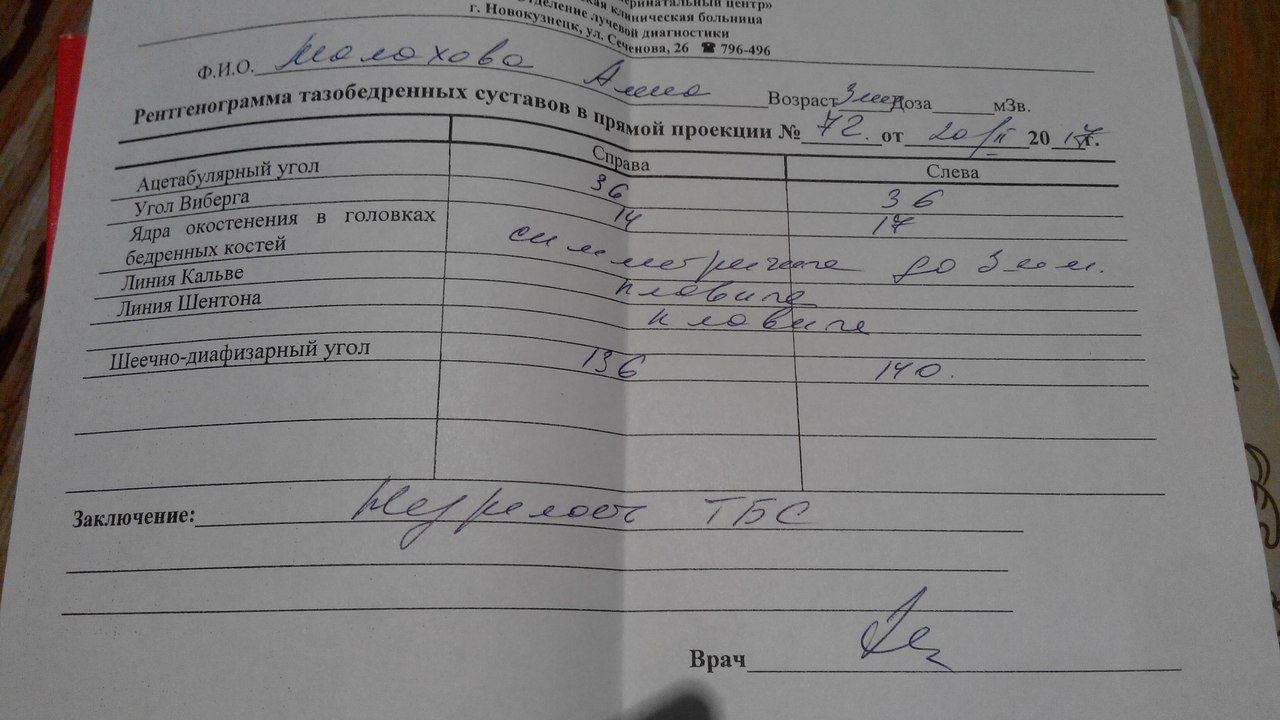 ринатальный центр»
ская клиническая больница
Отделение лучевой диагностики
г. Новокузнецк, ул. Сеченова, 26 ☎ 796-496
Ф.И.О. Малахова Анна Возраст 3 мес Доза мЗв.
Рентгенограмма тазобедренных суставов в прямой проекции № 72. от 20/II 2017г.
Справа Слева
Ацетабулярный угол 36 36
Угол Виберга 14 17
Ядра окостенения в головках
бедренных костей симметричные до 3 мм.
Линия Кальве плавные
Линия Шентона плавные
Шеечно-диафизарный угол 136 140.
Заключение: Незрелость ТБС
Врач